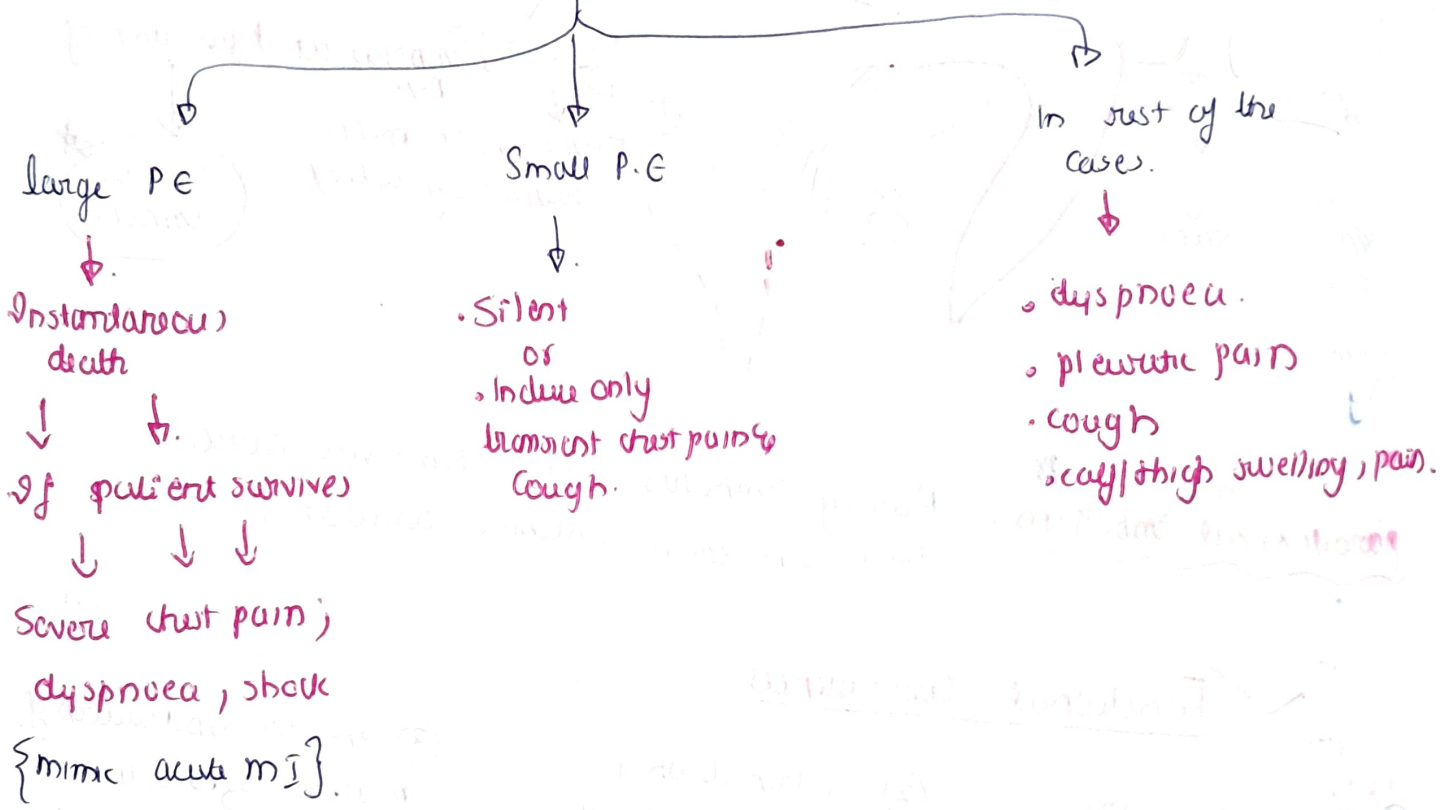 large PE
Instantaneous
death
If patient survives
Severe chest pain,
dyspnoea, shock
{mimic acute MI}.
Small P.E
• Silent
or
• Induce only
transient chest pain &
Cough.
In rest of the
cases.
• dyspnoea.
• pleuritic pain
• cough
• calf/thigh swelling, pain.